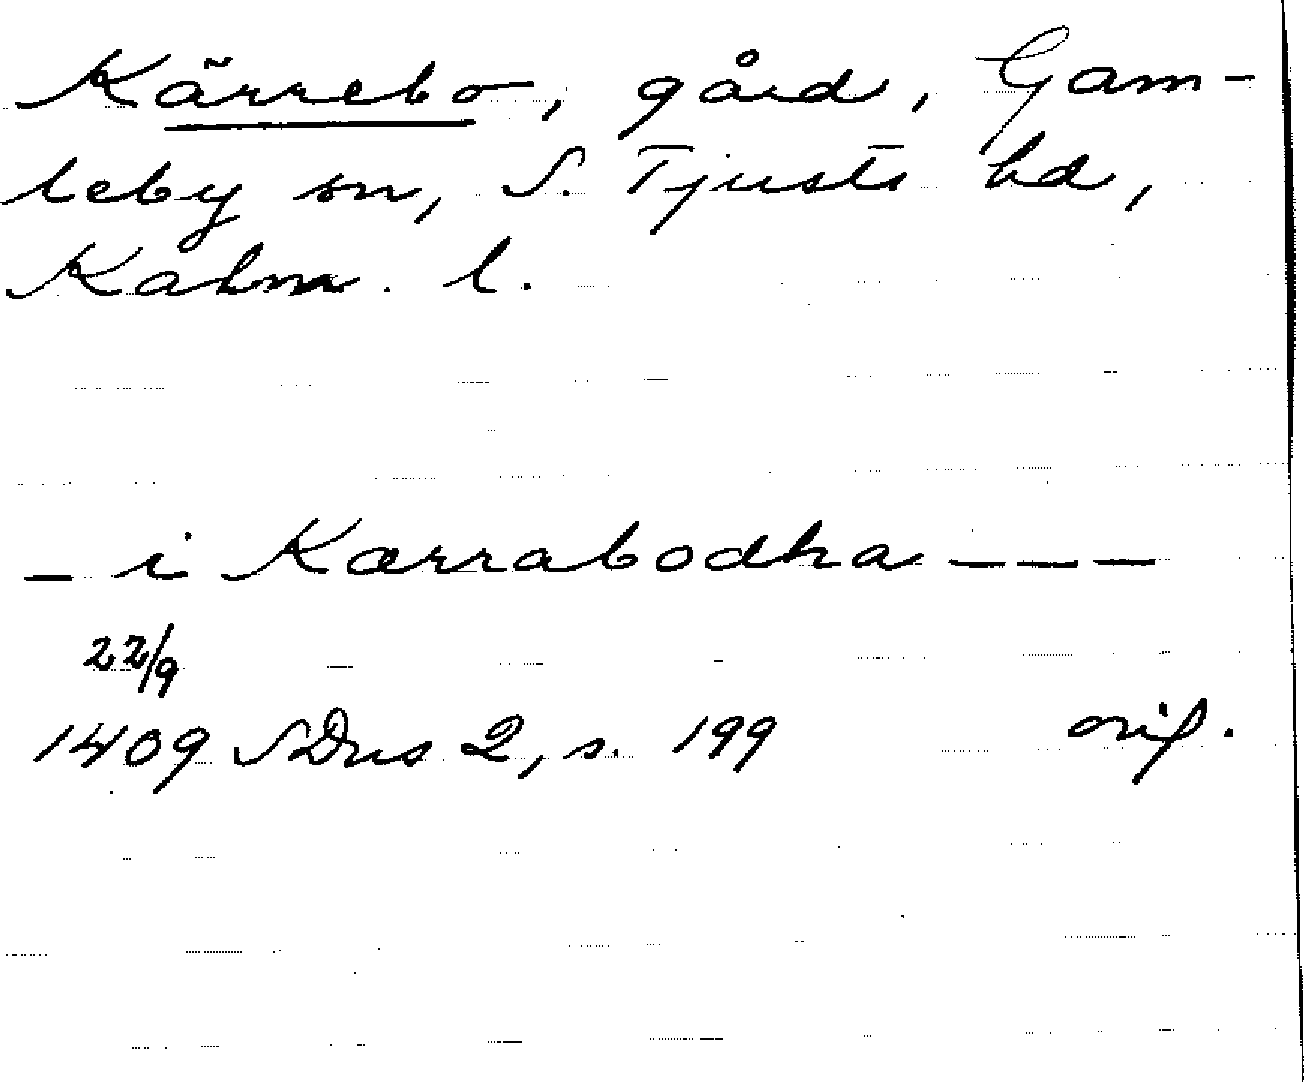 Kärrebo, gård, Gam-
leby sn, S. Tjusts hd,
Kalm. l.
– i Kærrabodha – – –
22/9
1409 SDns 2, s. 199 orig.